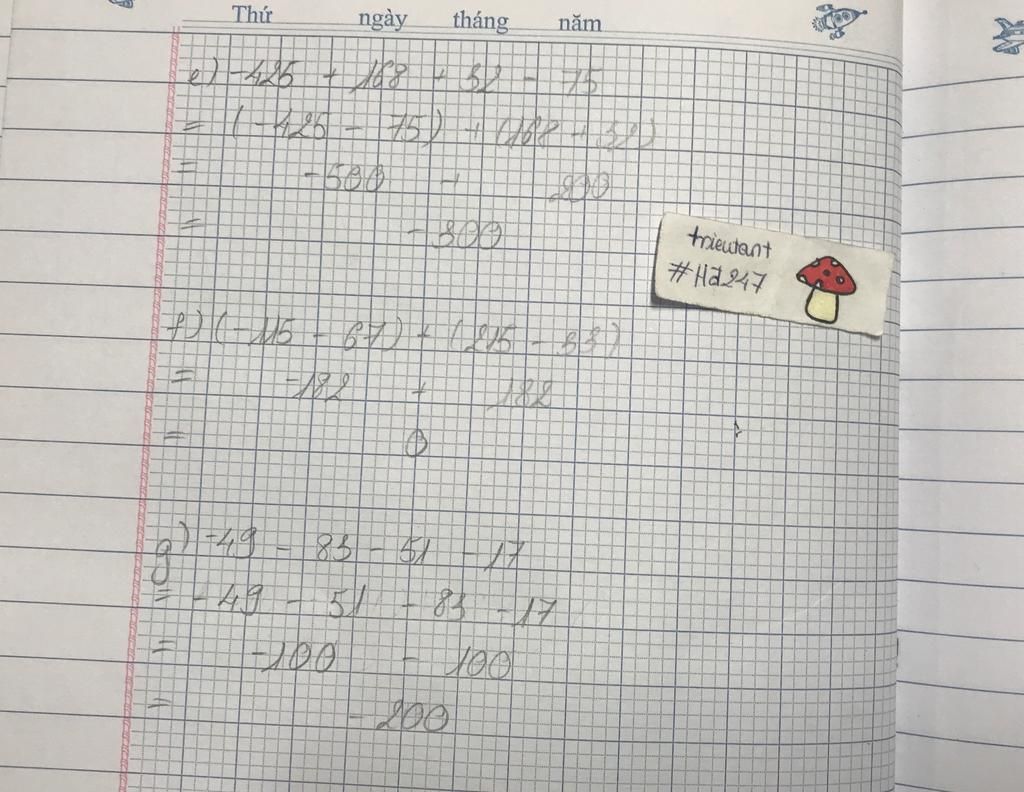 Thứ ngày tháng năm
e) -425 + 168 + 32 - 75
= (-425 - 75) + (168 + 32)
= -500 + 200
= -300
trieutant
#Hd247
f) (-115 - 67) + (215 - 33)
= -182 + 182
= 0
g) -49 - 83 - 51 - 17
= -49 - 51 - 83 - 17
= -100 - 100
= -200